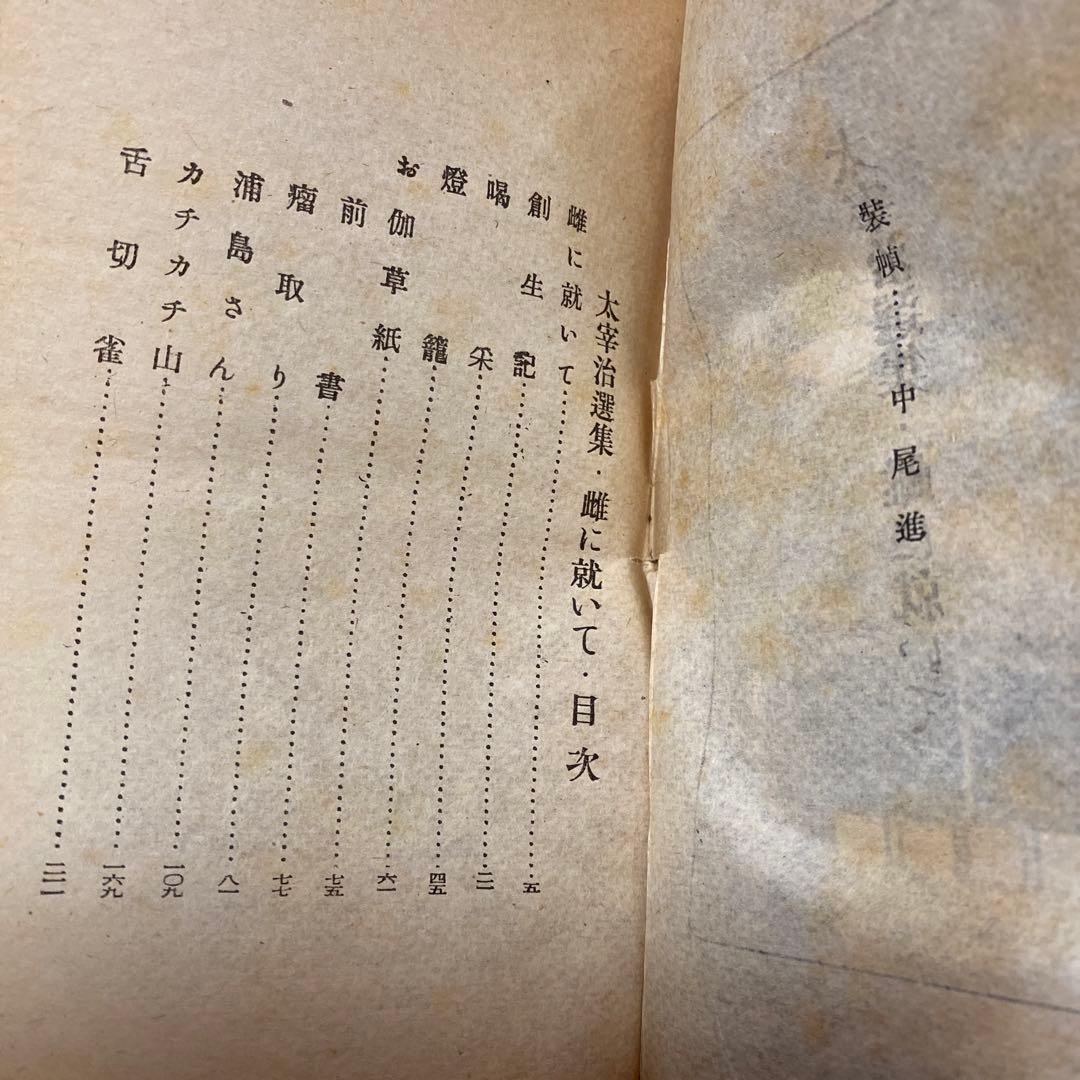 裝幀………中尾進
太宰治選集・雌に就いて・目次
雌に就いて……五
創生記……二一
喝采……四五
燈籠……六一
お伽草紙……七五
前書……七七
瘤取り……八一
浦島さん……一〇九
カチカチ山……一六九
舌切雀……